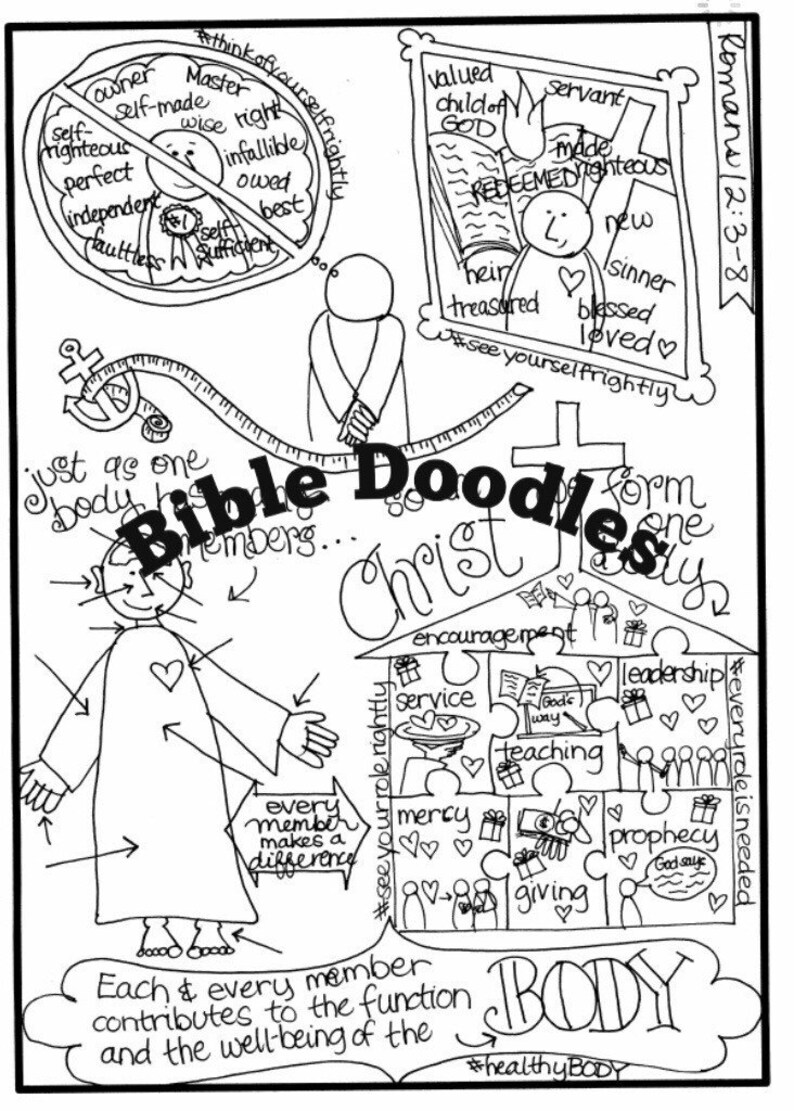 #thinkofyourselfrightly
owner Master
self-made
wise right
self-
righteous
infallible
perfect
owed
independent
best
#1
self-
sufficient
faultless
valued
child of
GOD
servant
made
righteous
REDEEMED
new
heir
sinner
treasured
blessed
loved
#seeyourselfrightly
Romans 12:3-8
just as one
body has
members...
Bible Doodles
form
one
body
Christ
encouragement
service
God's
way
teaching
leadership
mercy
$
giving
prophecy
God says
#seeyourrolerightly
#everyroleisneeded
every
member
makes a
difference
Each & every member
contributes to the function
and the well-being of the
BODY
#healthyBODY